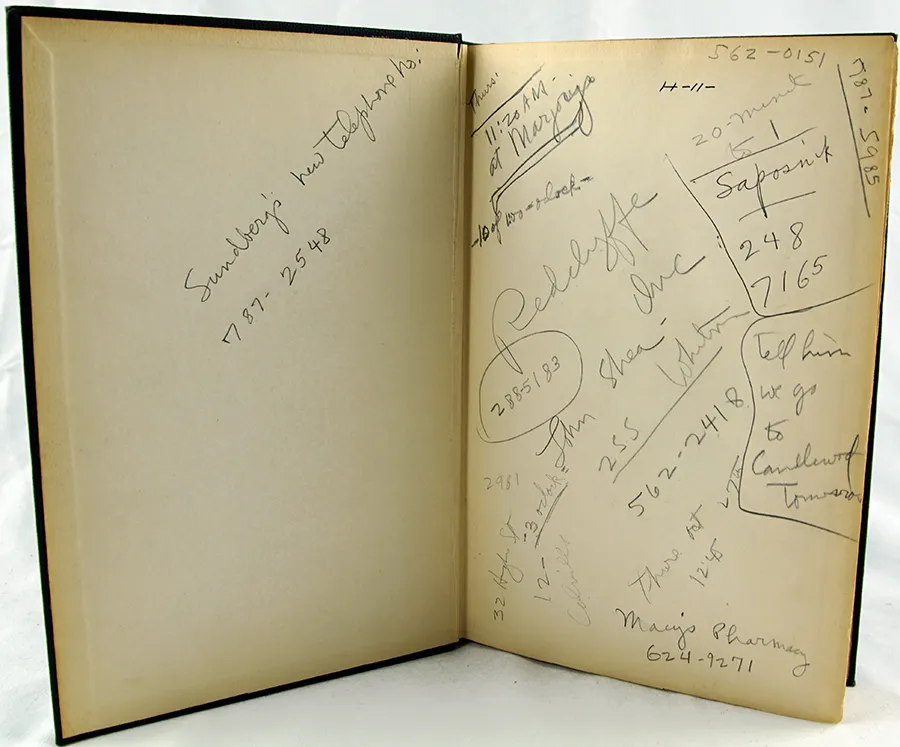 Sundberg's new telephone no:
787-2548
562-0151
787-5985
Thurs:
11:20 AM-
at Marjorie's
H-11-
20-minute
to 1
Saposnik
248
7165
Radclyffe
Inc
288-5183
John Shea-
255 Whitn
562-2418
Tell him
we go
to
Candlewood
Tomorrow
2981
32 High St
12-
-3 o'clock-
Thurs. oct
12:45
Macy's Pharmacy
624-9271